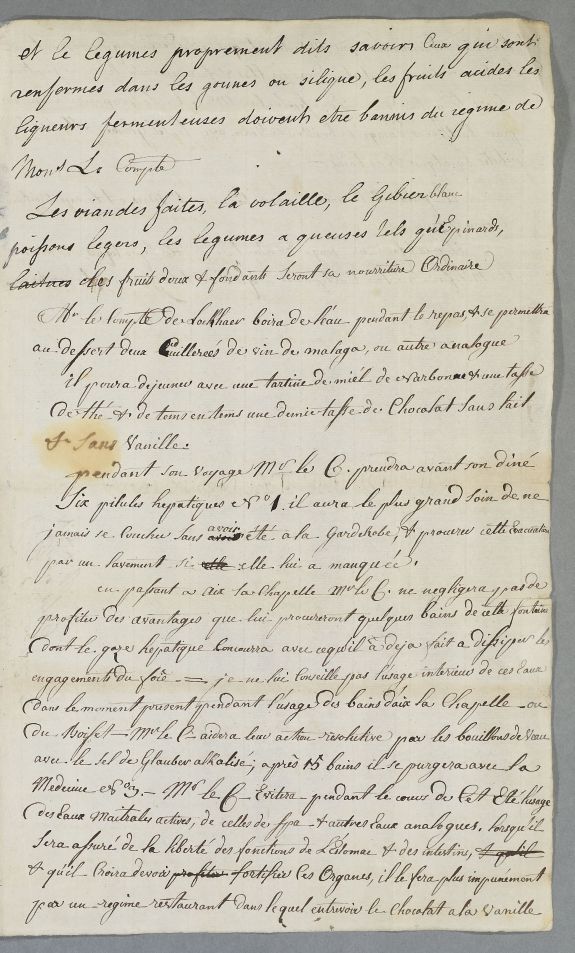 et le legumes proprement dits savoir ceux qui sont
renfermés dans les gouses ou silique, les fruits acides les
liqueurs fermenteuses doivent etre bannis du regime de
Monsr Le Compte
Les viandes faites, la volaille, le Gibier blanc
poissons legers, les legumes aqueuses tels qu'Epinards,
laitues des fruits doux & fondants seront sa nourriture Ordinaire
Mr le Compte de boira de l'eau pendant le repas, & se permettra
au dessert deux Cuillereés de vin de malaga, ou autre analogue
il poura dejeuner avec une tartine de miel de Narbonne & une tasse
de thé & de tems en tems une demie tasse de Chocolat sans lait
& Sans Vanille.
pendant son Voyage Mr le C. prendra avant son diné
Six pilules hepatiques No 1, il aura le plus grand soin de ne
jamais se coucher sans avoir été a la Garderobe, & procurer cette Evacuation
par un lavement si elle elle lui a manquée.
en passant a Aix la Chapelle Mr le C. ne negligera pas de
profiter des avantages que lui procureront quelques bains de cette fontaine
dont le gaze hepatique concourra avec ce qu'il a deja fait a dissiper les
engagements du foie = je ne lui Conseille pas l'usage interieur de ces Eaux
dans le moment present pendant l'usage des bains d'aix la Chapelle ou
du Mr le C aidera leur action resolutive par les bouillons de Veau
avec le sel de Glauber alkalisé; après 15 bains il se purgera avec la
Medecine No Mr le C Evitera pendant le cours de Cet Eté l'usage
des Eaux actives, de celles de Spa & autres Eaux analogues, lorsqu'il
sera assuré de la liberté des fonctions de L'Estomac & des intestins, & qu'il
& qu'il Croira devoir profiter fortifier ces Organes, il le fera plus impunément
par un regime restaurant dans lequel entrevoir le Chocolat a la Vanille